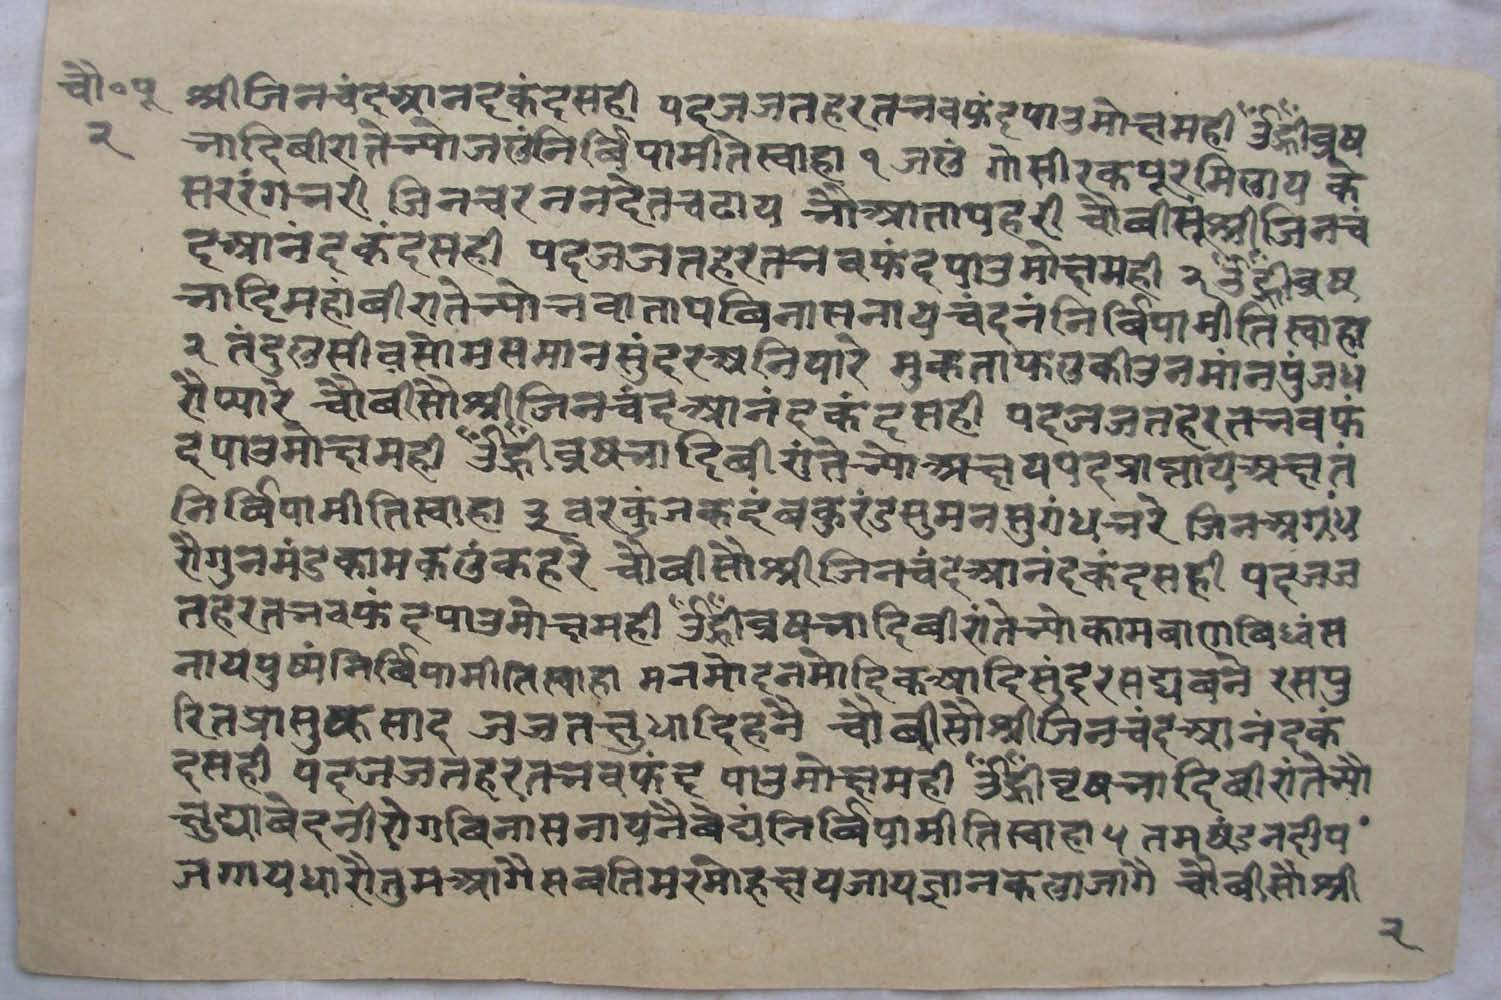 चौ॰पू श्रीजिनचंदआनदकंदसही पदजजतहरतभवफंदपाउमोक्षमही ॐह्रींवृष
२ भादिबीरांतेभ्योजलंनिर्बिपामीतेस्वाहा १ जलं गोसीरकपूरमिलाय कें
सररंगभरी जिनचरननदेतचढाय भौआतापहरी चौबीसूंश्रीजिनचं
दआनंदकंदसही पदजजतहरतभवफंदपाउमोक्षमही २ ॐह्रींवृष
भादिमहांबीरातेभ्योभवातापबिनासनायचंदनंनिर्बिपामीतिस्वाहा
२ तंदुलसीतसोमसमानसुंदरअनियारे मुकताफलकीउनमांनपुंजध
रौप्यारे चौबीसौश्रीजिनचंदआनंदकंदसही पदजजतहरतभवफं
दपाउमोक्षमही ॐह्रींवृषभादिबीरांतेभ्योअक्षयपदप्राप्तायअक्षतं
निर्बिपामीतिस्वाहा ३ वरकुंजकदंबकुरंडसुमनसुगंधभरे जिनअग्रंध
रौगुनमंडकामकलंकहरे चौबीसौश्रीजिनचंदआनंदकंदसही पदजज
तहरतभवफंदपाउमोक्षमही ॐह्रींवृषभादिबीरांतेभ्योकामबाणबिध्वंस
नायपुष्पंनिर्बिपामीतिस्वाहा मनमोदनमोदिकआदिसुंदरसद्यबने रसपु
रितप्रासुकसाद जजतक्षुधादिहनै चौबीसौश्रीजिनचंदआनंदकं
दसही पदजजतहरतभवफंद पाउमोक्षमही ॐह्रींवृषभादिबीरांतेभ्यौ
क्षुद्याबेदनीरोगबिनासनायनैबेद्यंनिर्बिपामीतिस्वाहा ५ तमषंडनदीप
जगायधारौतुमआगैसबतिमरमोहक्षयजायज्ञानकलाजागै चौबीसौश्री
२